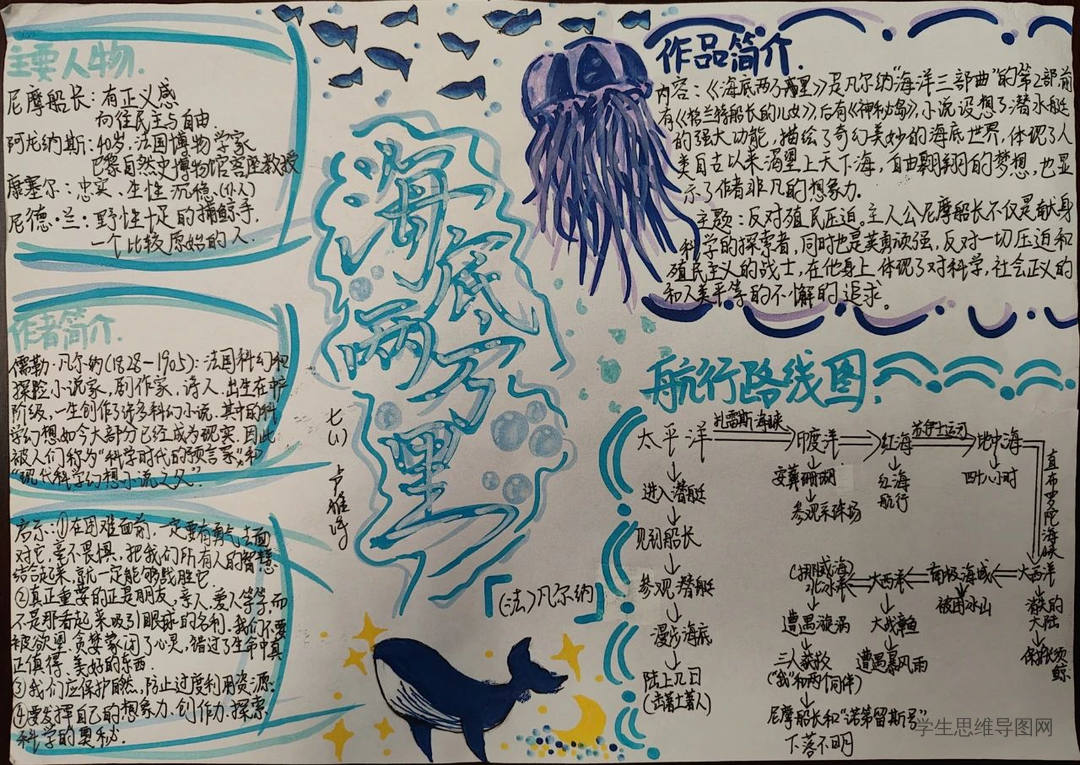 主要人物.
尼摩船长:有正义感
向往民主与自由
阿龙纳斯:40岁,法国博物学家
巴黎自然史博物馆客座教授
康塞尔:忠实、生性沉稳.(仆人)
尼德·兰:野性十足的捕鲸手.
一个比较原始的人.
作者简介.
儒勒·凡尔纳(1828-1905):法国科幻和
探险小说家,剧作家,诗人.出生在中产
阶级,一生创作了许多科幻小说,其中的科
学幻想如今大部分已经成为现实.因此
被人们称为"科学时代的预言家"和
"现代科学幻想小说之父".
启示:①在困难面前,一定要有勇气去面
对它,毫不畏惧,把我们所有人的智慧
结合起来,就一定能够战胜它.
②真正重要的正是朋友、亲人、爱人等等,而
不是那看起来吸引眼球的名利,我们不要
被欲望、贪婪蒙闭了心灵,错过了生命中真
正值得、美好的东西.
③我们应保护自然,防止过度利用资源.
④要发挥自己的想象力、创作力,探索
科学的奥秘.
海底两万里
七(1)
「(法)凡尔纳」
作品简介.
内容:《海底两万里》是凡尔纳"海洋三部曲"的第2部,前
有《格兰特船长的儿女》,后有《神秘岛》,小说设想了潜水艇
的强大功能,描绘了奇幻美妙的海底世界,体现了人
类自古以来渴望上天下海,自由翱翔的梦想,也显
示了作者非凡的想象力.
主题:反对殖民压迫。主人公尼摩船长不仅是献身
科学的探索者,同时也是英勇顽强,反对一切压迫和
殖民主义的战士,在他身上体现了对科学,社会正义的
和人类平等的不懈的追求。
航行路线图.
太平洋 托雷斯海峡 印度洋 红海 苏伊士运河 地中海
直布罗陀海峡
进入潜艇
见到船长
参观潜艇
漫步海底
陆上几日
(击著土著人)
安葬珊瑚
参观采珠场
红海
航行
四十八小时
(挪威海)
北冰洋 大西洋 南极海域 大西洋
遭遇漩涡
三人获救
("我"和两个同伴)
尼摩船长和"诺第留斯号"
下落不明
大战章鱼
遭遇暴风雨
被困冰山
消失的
大陆
保护长须
鲸
学生思维导图网